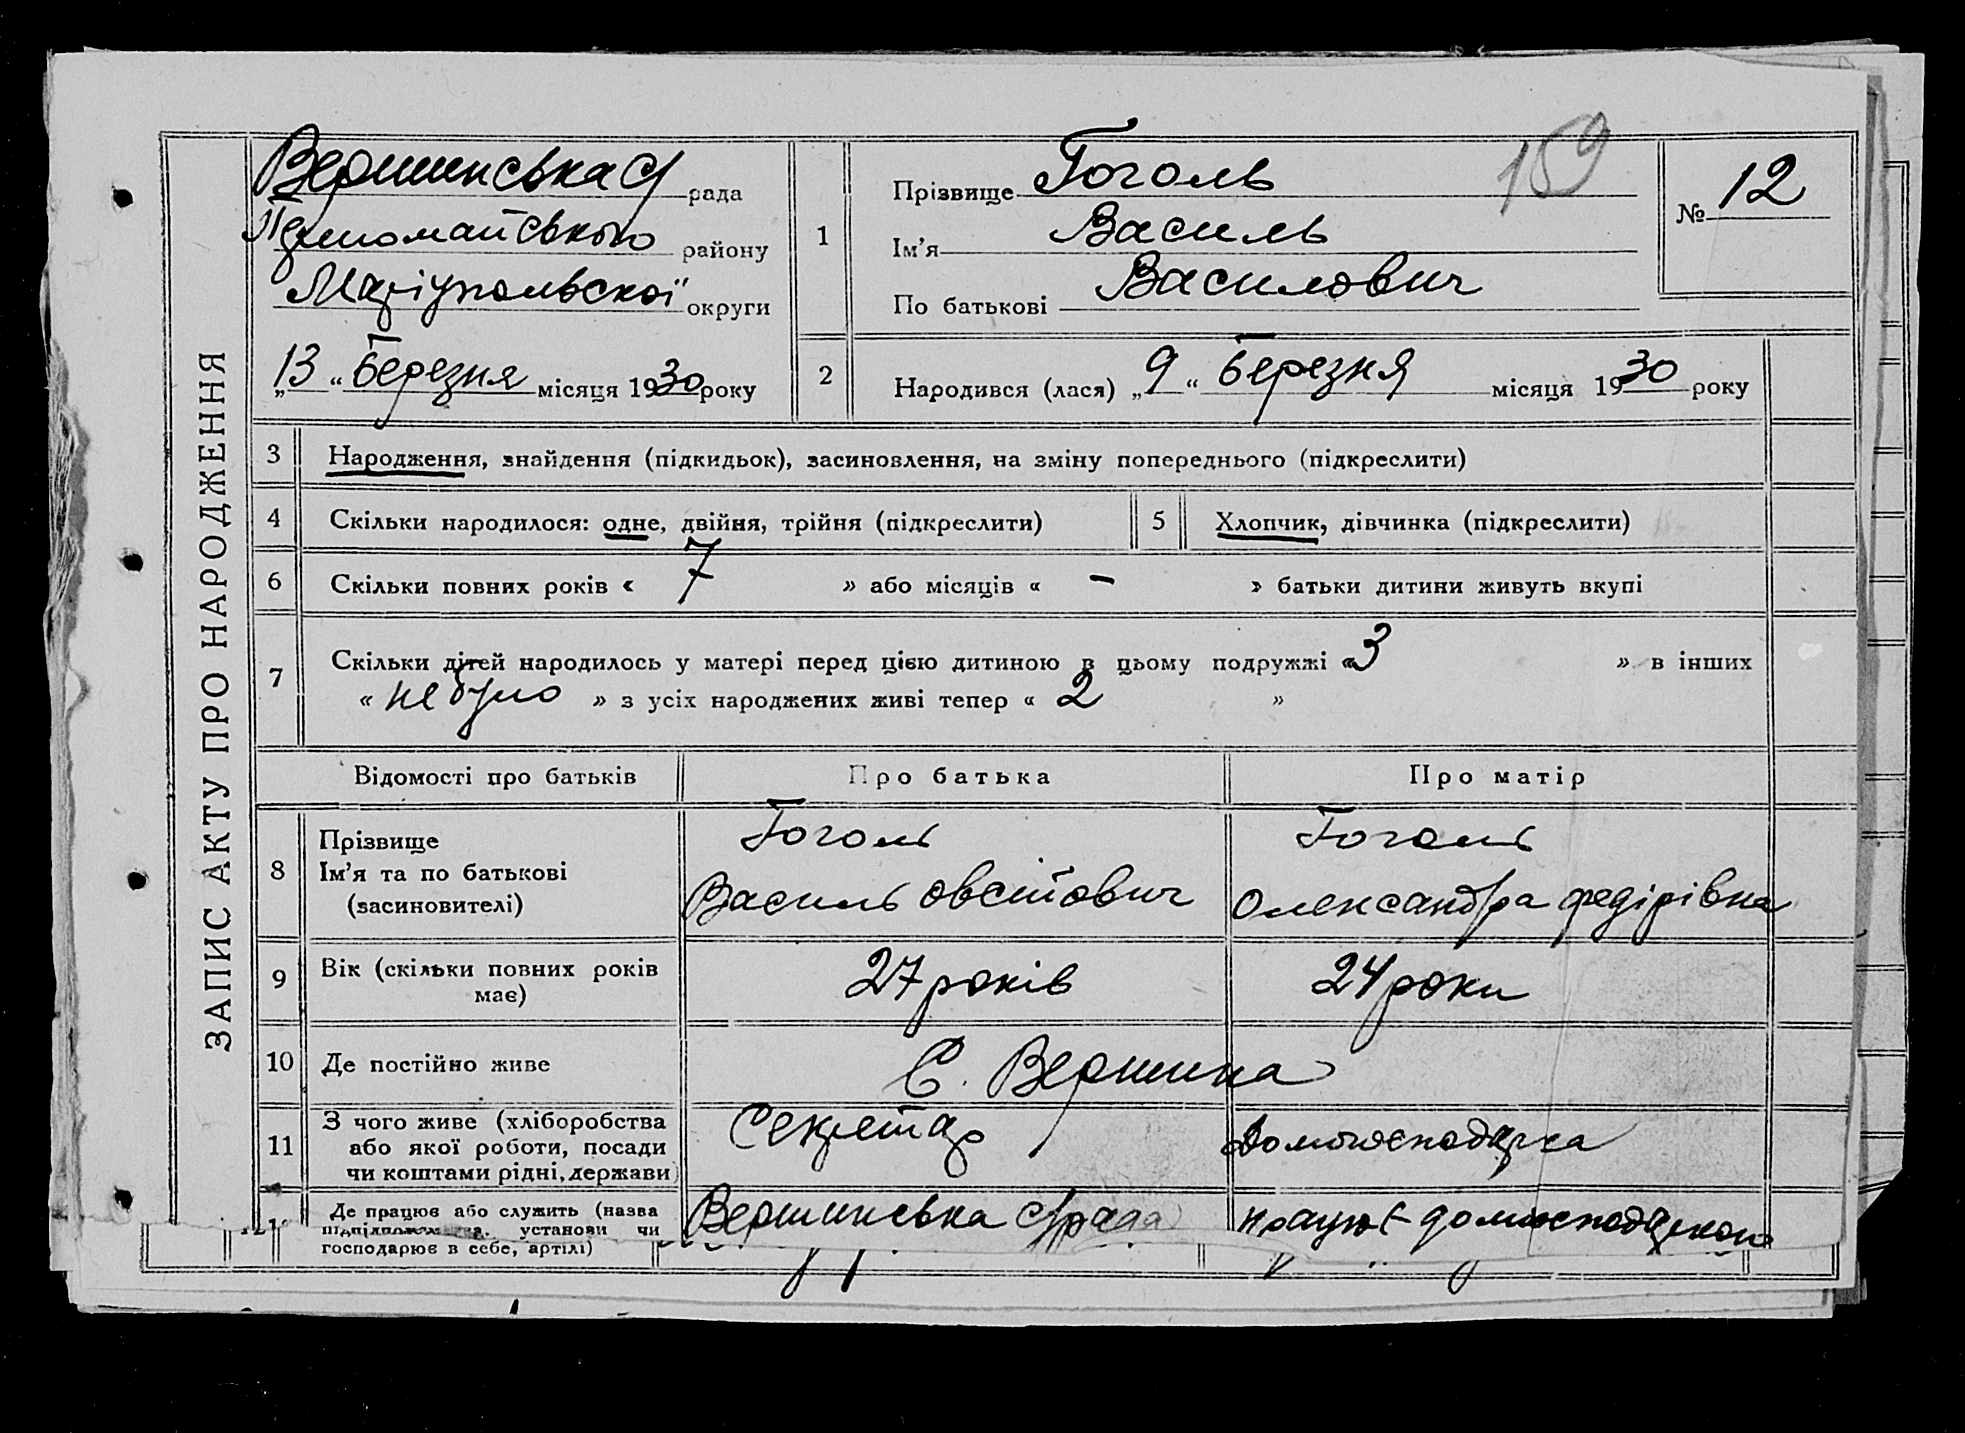 ЗАПИС АКТУ ПРО НАРОДЖЕННЯ
Вершинська с/ рада
Першомайського району
Маріупольскої округи
„13“ березня місяця 1930 року
1
Прізвище Гоголь
Ім’я Василь
По батькові Василович
159
№ 12
2 Народився (лася) „9“ березня місяця 1930 року
3 Народження, знайдення (підкидьок), засиновлення, на зміну попереднього (підкреслити)
4 Скільки народилося: одне, двійня, трійня (підкреслити) 5 Хлопчик, дівчинка (підкреслити)
6 Скільки повних років « 7 » або місяців « - » батьки дитини живуть вкупі
7 Скільки дітей народилось у матері перед цією дитиною в цьому подружжі « 3 » в інших
« не було » з усіх народжених живі тепер « 2 »
Відомості про батьків Про батька Про матір
8 Прізвище
Ім’я та по батькові
(засиновителі)
Гоголь
Василь
Гоголь
Олександра Федірівна
9 Вік (скільки повних років
має)
27 років 24 роки
10 Де постійно живе С. Вершина
11 З чого живе (хліборобства
або якої роботи, посади
чи коштами рідні, держави)
Секретар Домогосподарка
Де працює або служить (назва
установи чи
господарює в себе, артілі)
Вершинська с/рада
працює домогосподаркою